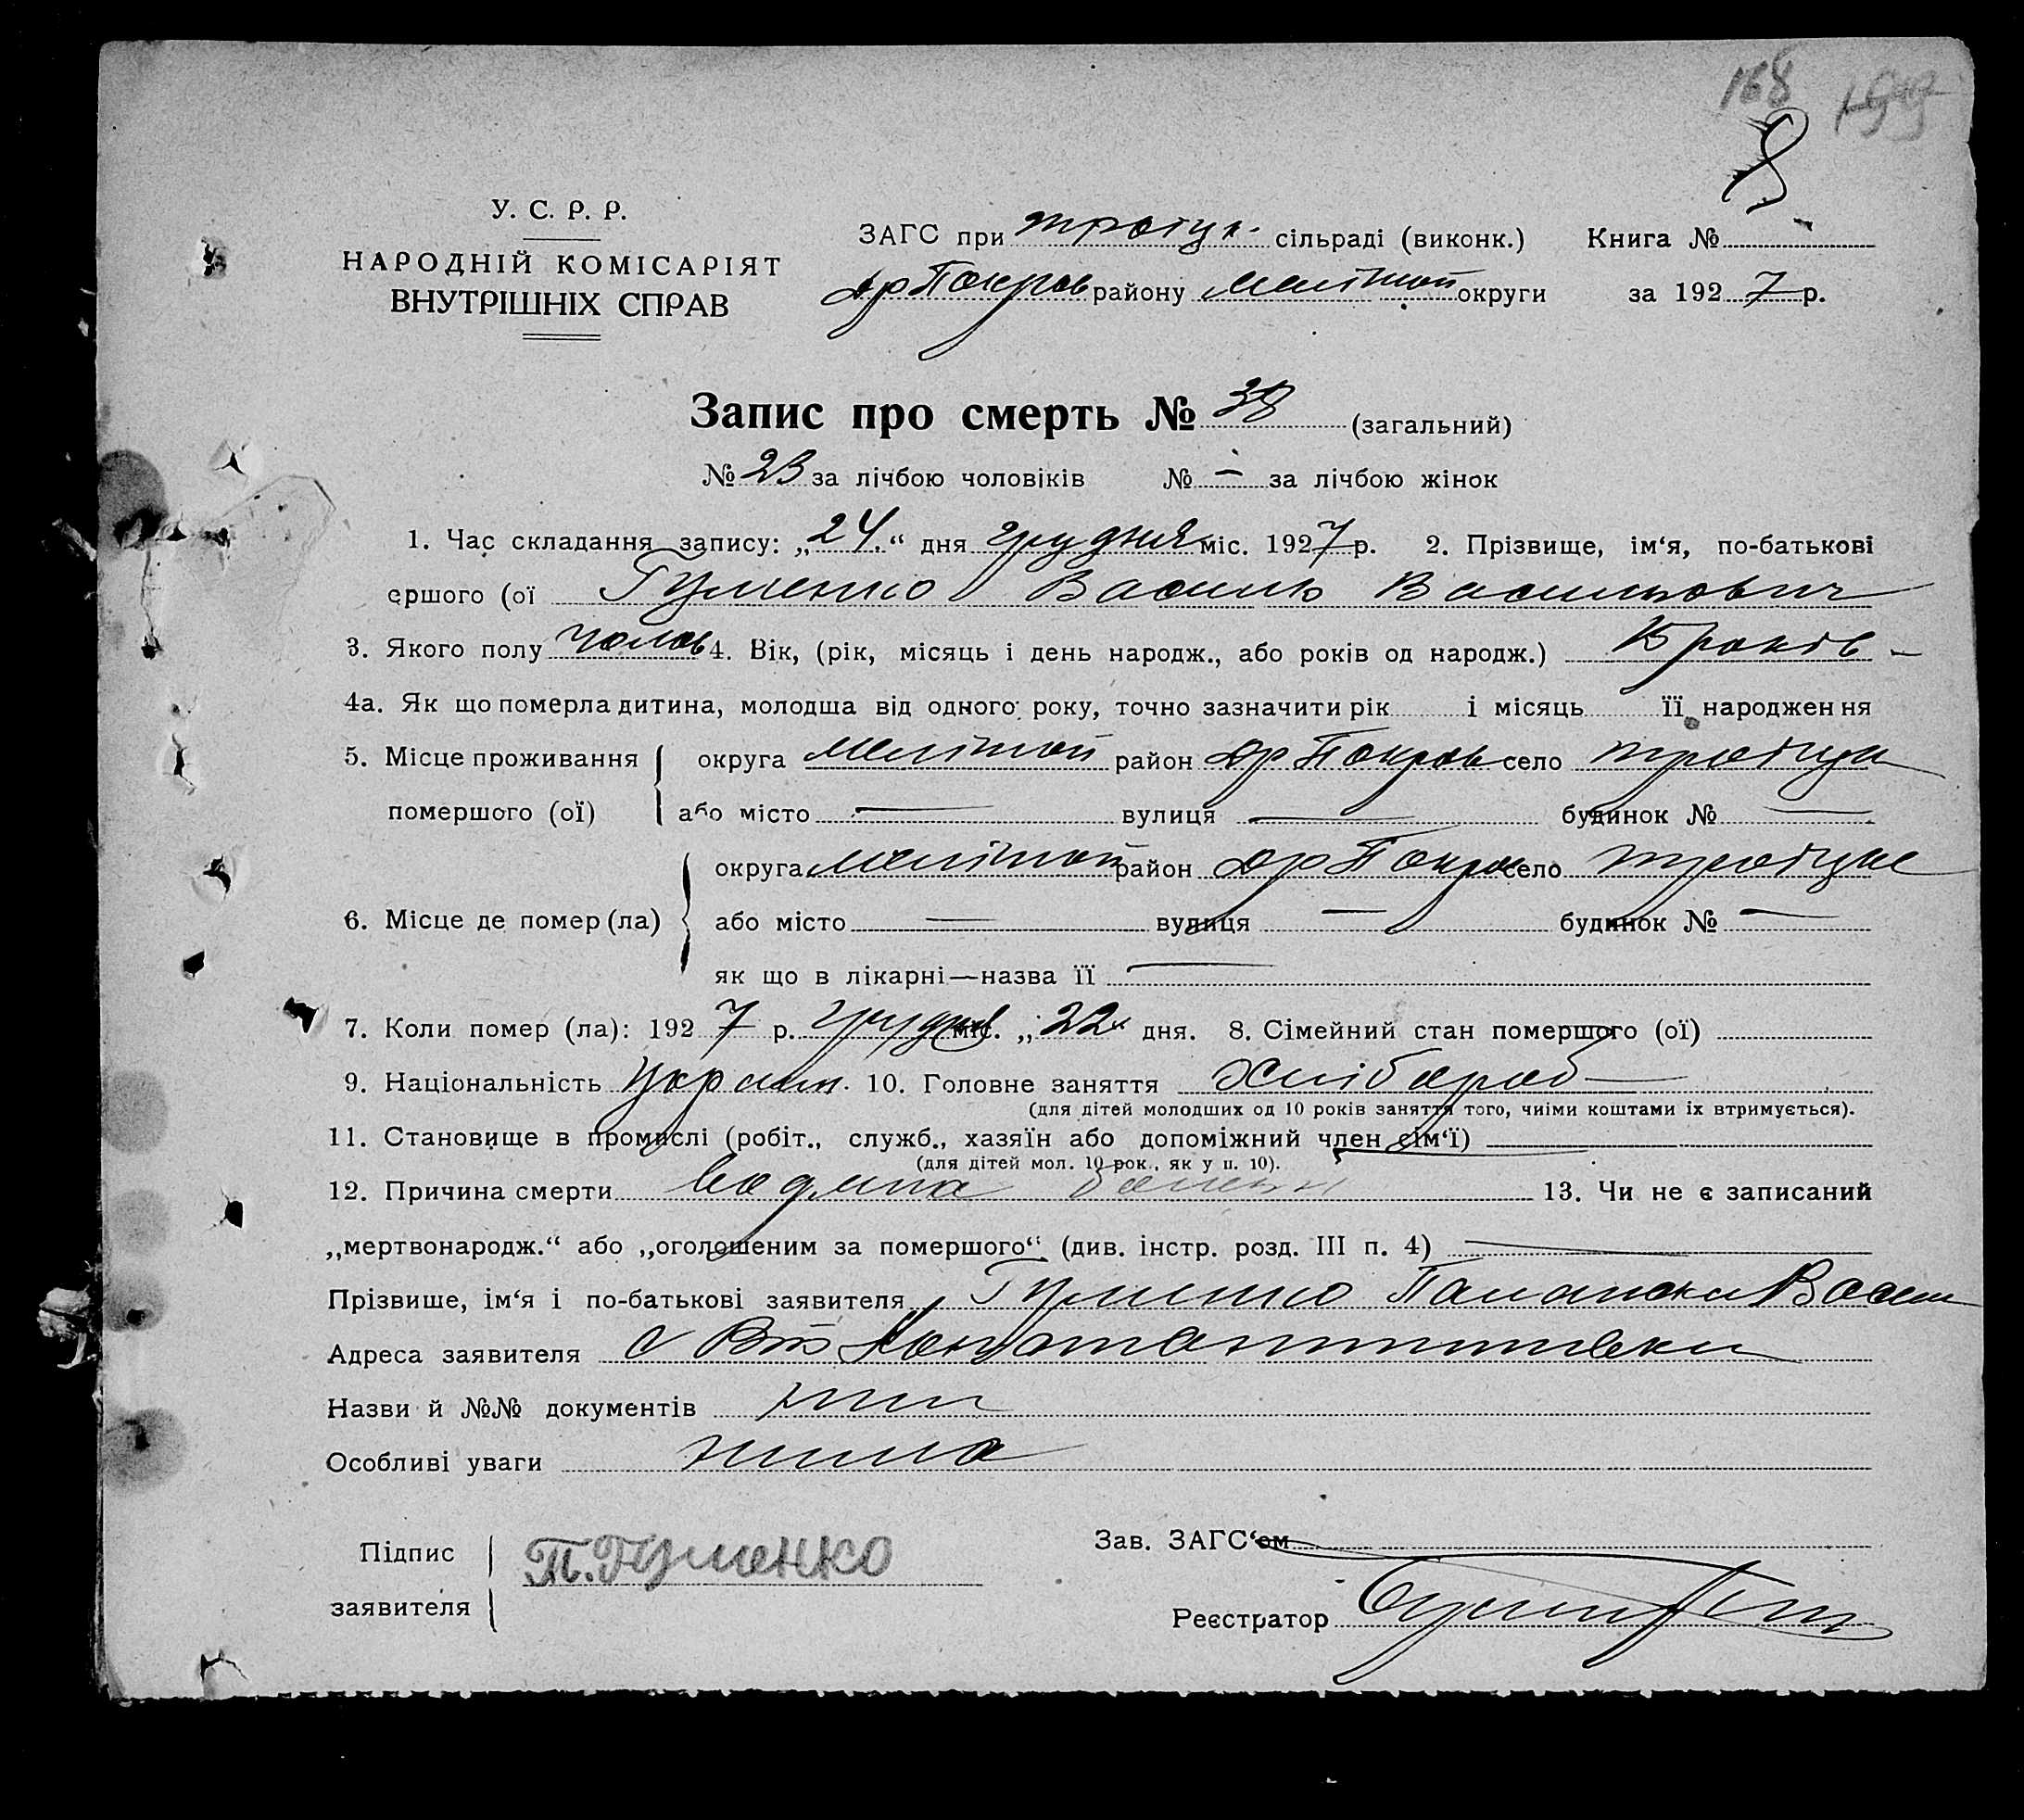 168 199
8
У. С. Р. Р.
НАРОДНІЙ КОМІСАРІЯТ
ВНУТРІШНІХ СПРАВ
ЗАГС при троіцк. сільраді (виконк.) Книга №
др Покров району меліточ округи за 1927 р.
Запис про смерть № 38 (загальний)
№ 23 за лічбою чоловіків № — за лічбою жінок
1. Час складання запису: „24.“ дня грудня міс. 1927 р. 2. Прізвище, ім‘я, по-батькові
ершого (ої Гуменко Василь Васильович
3. Якого полу чолов 4. Вік, (рік, місяць і день народж., або років од народж.) 15 років —
4а. Як що померла дитина, молодша від одного року, точно зазначити рік і місяць її народження
5. Місце проживання округа меліточ район др Покров село троіцьк
помершого (ої) або місто — вулиця — будинок № —
округа меліточ район др Покров село троіцьке
6. Місце де помер (ла) або місто — вулиця — будинок № —
як що в лікарні—назва її —
7. Коли помер (ла): 1927 р. грудня міс. „22“ дня. 8. Сімейний стан помершого (ої)
9. Національність украін. 10. Головне заняття хлібороб —
(для дітей молодших од 10 років заняття того, чиіми коштами іх втримується).
11. Становище в промислі (робіт., служб., хазяїн або допоміжний член сім‘ї) —
(для дітей мол. 10 рок., як у п. 10).
12. Причина смерти 13. Чи не є записаний
„мертвонародж.“ або „оголошеним за помершого“ (див. інстр. розд. III п. 4) —
Прізвише, ім‘я і по-батькові заявителя Гуменко Васил
Адреса заявителя с Константинівки
Назви й №№ документів
Особливі уваги нима
Підпис Т. Гуменко Зав. ЗАГС‘ом
заявителя
Реєстратор